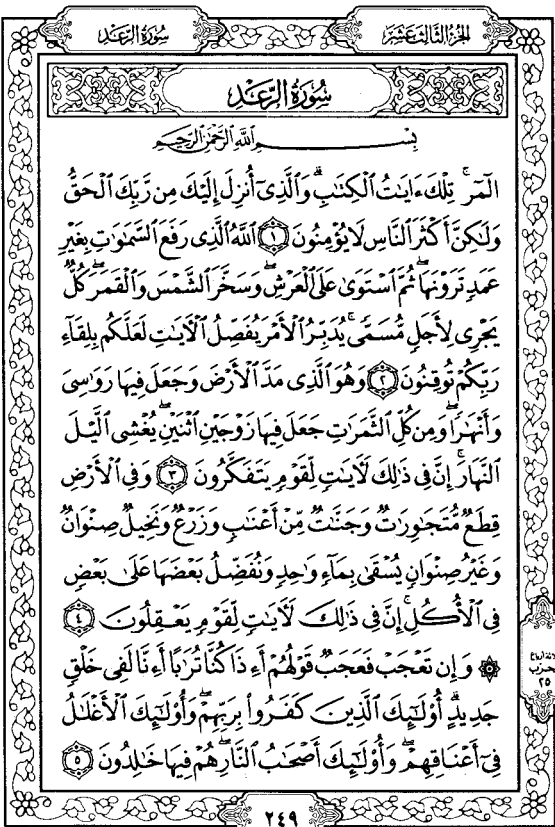 سُورَةُ الرَّعْدِ
الجُزءُ الثَّالِثَ عَشَرَ
سُورَةُ الرَّعْدِ
بِسْمِ اللَّهِ الرَّحْمَٰنِ الرَّحِيمِ
الٓمٓرۚ تِلْكَ ءَايَٰتُ ٱلْكِتَٰبِۗ وَٱلَّذِىٓ أُنزِلَ إِلَيْكَ مِن رَّبِّكَ ٱلْحَقُّ
وَلَٰكِنَّ أَكْثَرَ ٱلنَّاسِ لَا يُؤْمِنُونَ ١ ٱللَّهُ ٱلَّذِى رَفَعَ ٱلسَّمَٰوَٰتِ بِغَيْرِ
عَمَدٍ تَرَوْنَهَاۖ ثُمَّ ٱسْتَوَىٰ عَلَى ٱلْعَرْشِۖ وَسَخَّرَ ٱلشَّمْسَ وَٱلْقَمَرَۖ كُلٌّ
يَجْرِى لِأَجَلٍ مُّسَمًّىۚ يُدَبِّرُ ٱلْأَمْرَ يُفَصِّلُ ٱلْءَايَٰتِ لَعَلَّكُم بِلِقَآءِ
رَبِّكُمْ تُوقِنُونَ ٢ وَهُوَ ٱلَّذِى مَدَّ ٱلْأَرْضَ وَجَعَلَ فِيهَا رَوَٰسِىَ
وَأَنْهَٰرًاۖ وَمِن كُلِّ ٱلثَّمَرَٰتِ جَعَلَ فِيهَا زَوْجَيْنِ ٱثْنَيْنِۖ يُغْشِى ٱلَّيْلَ
ٱلنَّهَارَۚ إِنَّ فِى ذَٰلِكَ لَءَايَٰتٍ لِّقَوْمٍ يَتَفَكَّرُونَ ٣ وَفِى ٱلْأَرْضِ
قِطَعٌ مُّتَجَٰوِرَٰتٌ وَجَنَّٰتٌ مِّنْ أَعْنَٰبٍ وَزَرْعٌ وَنَخِيلٌ صِنْوَانٌ
وَغَيْرُ صِنْوَانٍ يُسْقَىٰ بِمَآءٍ وَٰحِدٍ وَنُفَضِّلُ بَعْضَهَا عَلَىٰ بَعْضٍ
فِى ٱلْأُكُلِۚ إِنَّ فِى ذَٰلِكَ لَءَايَٰتٍ لِّقَوْمٍ يَعْقِلُونَ ٤
۞ وَإِن تَعْجَبْ فَعَجَبٌ قَوْلُهُمْ أَءِذَا كُنَّا تُرَٰبًا أَءِنَّا لَفِى خَلْقٍ
جَدِيدٍۗ أُو۟لَٰٓئِكَ ٱلَّذِينَ كَفَرُوا۟ بِرَبِّهِمْۖ وَأُو۟لَٰٓئِكَ ٱلْأَغْلَٰلُ
فِىٓ أَعْنَاقِهِمْۖ وَأُو۟لَٰٓئِكَ أَصْحَٰبُ ٱلنَّارِۖ هُمْ فِيهَا خَٰلِدُونَ ٥
٢٥
٢٤٩